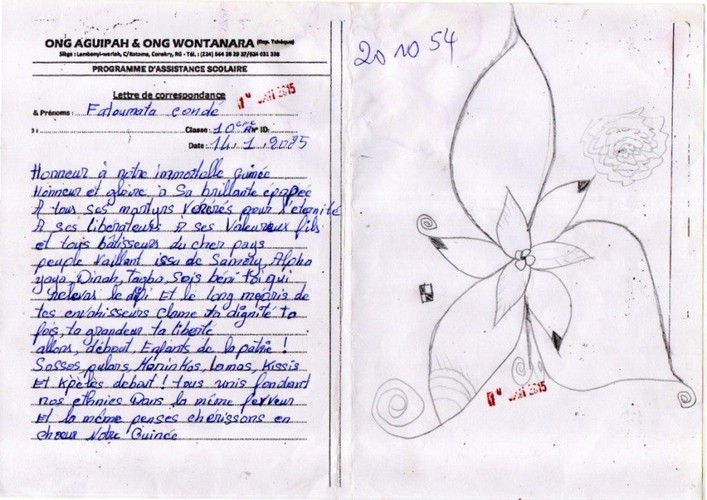 ONG AGUIPAH & ONG WONTANARA (Rep. Tchèque)
Siège : Lambanyi-wariah, C/Ratoma, Conakry, RG - Tél. : (224)
PROGRAMME D'ASSISTANCE SCOLAIRE
Lettre de correspondance
& Prénoms : Fatoumata condé
Classe : 10ème N° ID:
Date : 14 / 1 / 2015
JAN 2015
Honneur à nôtre immortelle Guinée
Honneur et gloire à Sa brillante épopée
A tous ses martyrs Vénérés pour l'éternité
A ses libérateurs A ses Valeureux fils
et tous bâtisseurs du cher pays
peuple Vaillant issu de Samory, Alpha
yaya, Dinah, Tagba, Sois béni toi qui
releva le défi Et le long mépris de
tes envahisseurs Clame ta dignité ta
fois, ta grandeur ta liberté
allons, débout, Enfants de la patrie !
Sosses, pulars, Maninkas, Lomas, Kissis
Et Kpèlès debout ! tous unis fondant
nos ethnies Dans la même ferveur
Et la même penses chérissons en
chœur Notre Guinée
20 10 54
JAN 2015